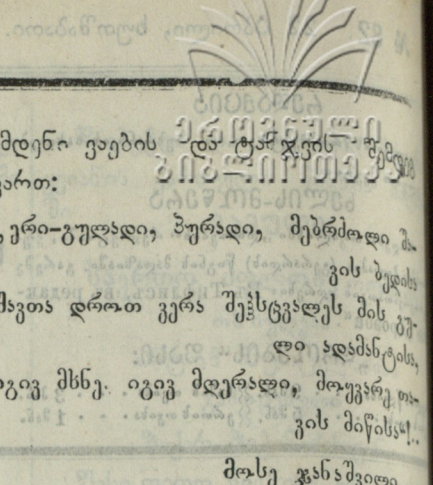 ეროვნული
ბიბლიოთეკა
მდენი ვაების და ტანჯვის შემდეგ
ვართ:
ერი-გულადი, პურადი, მებრძოლი შა-
ვის ბედისა
შავთა დროთ ვერა შესცვალეს მის გუ-
ლი ადამანტისა,
იგივ მხნე. იგივ მღერალი, მოყვარე თა-
ვის მიწისა"!..
მოსე ჯანაშვილი